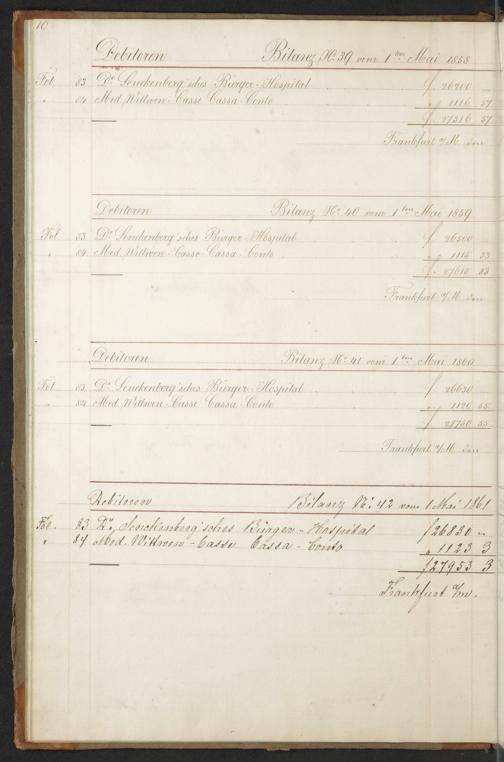 10
Debitoren Bilanz No. 39 vom 1ten Mai 1858
Fol. 83 Dr. Senckenberg'sches Bürger-Hospital f 26200 —
" 84 Med. Wittwen-Casse Cassa-Conto " 1116 57
f 27316 57
Frankfurt a/M. den
Debitoren Bilanz No. 40 vom 1ten Mai 1859
Fol. 83 Dr. Senckenberg'sches Bürger-Hospital f 26500 —
" 84 Med. Wittwen-Casse Cassa-Conto
Frankfurt a/M. den
Debitoren Bilanz No. 41 vom 1ten Mai 1860
Fol. 83 Dr. Senckenberg'sches Bürger-Hospital f 26630 —
" 84 Med. Wittwen-Casse Cassa-Conto " 1120 55
f 27750 55
Frankfurt a/M. den
Debitoren Bilanz No. 42 vom 1 Mai 1861
Fol. 83 Dr. Senckenberg'sches Bürger-Hospital f 26830 "
" 84 Med. Wittwen-Casse Cassa-Conto " 1123 3
f 27953 3
Frankfurt a/m.